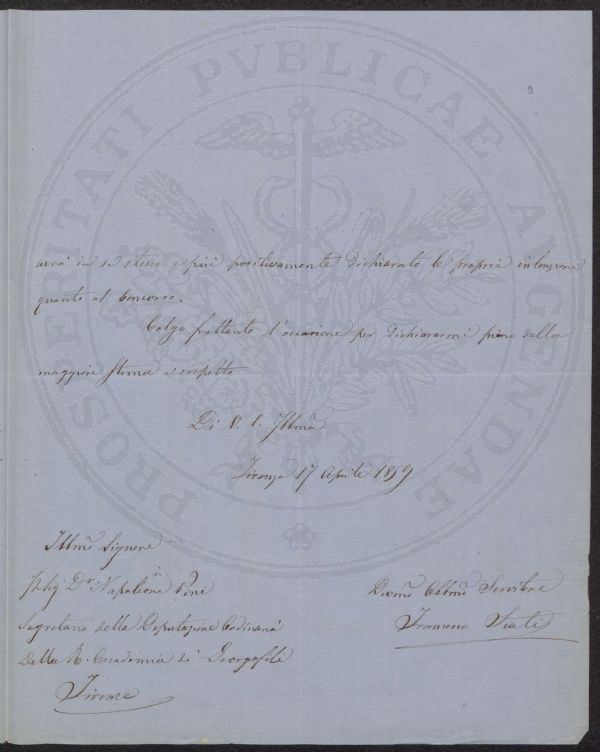 9
avrà da se stesso e più positivamente dichiarato le proprie intenzione
quanto al concorso.
Colgo frattanto l'occasione per dichiararmi pieno della
maggiore stima e rispetto
Di V. S. Illma
Firenze 17 Aprile 1859
Illmo Signore
Sig Dr Napoleone Pini
Segretario della Deputazione Ordinaria
Della R. Accademia di Georgofili
Firenze
Devmo Obbmo Servitore
Francesco
PROSPERITATI PVBLICAE AVGENDAE